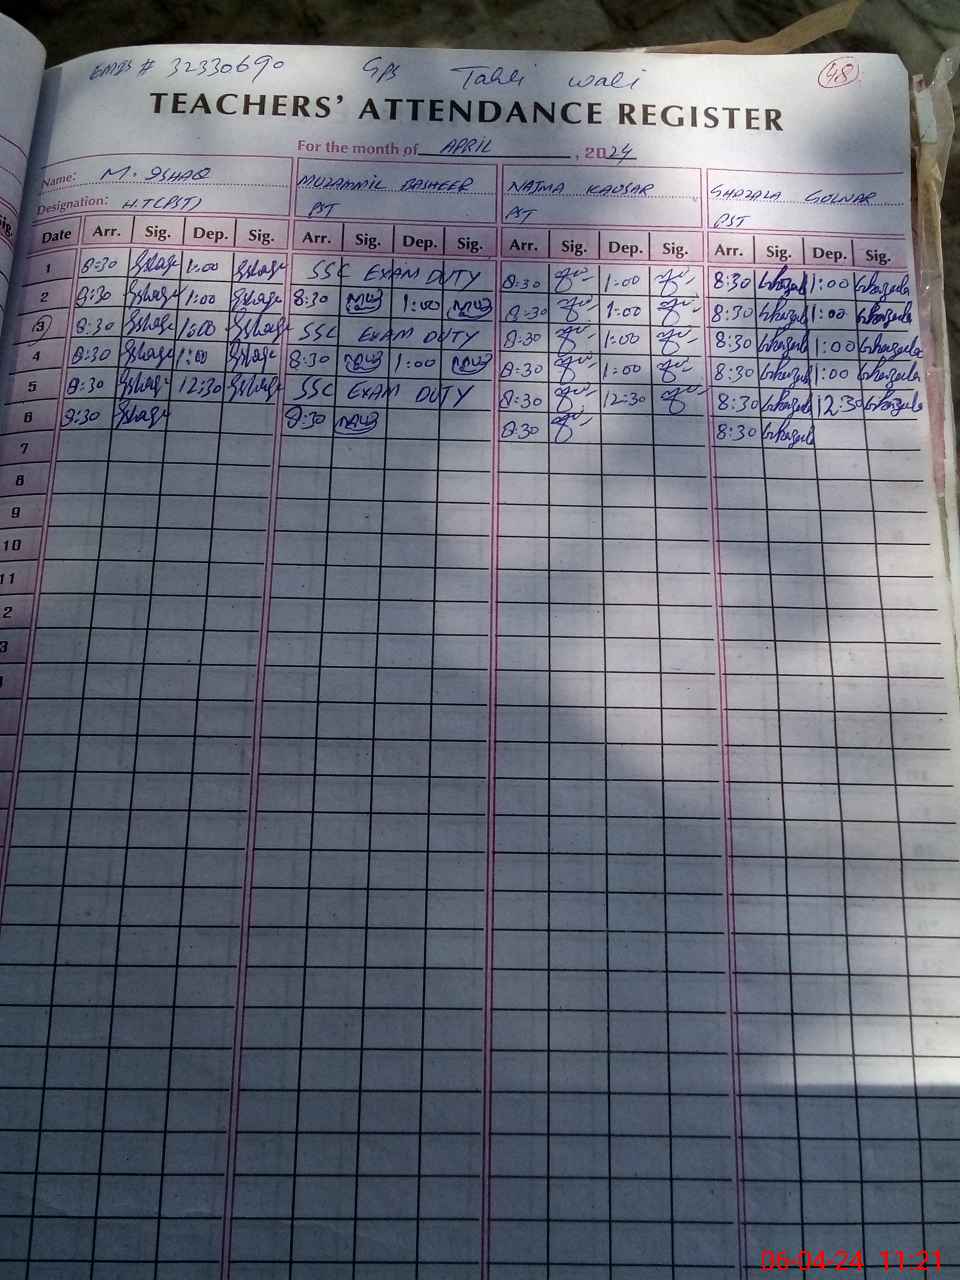 EMIS # 32330690 GPS Tahli wali 48
TEACHERS' ATTENDANCE REGISTER
For the month of APRIL, 2024
Name: M. ISHAQ MUZAMMIL BASHEER NAJMA KAUSAR GHAZALA GULNAR
Designation: H.T(PST) PST PST PST
Date Arr. Sig. Dep. Sig. Arr. Sig. Dep. Sig. Arr. Sig. Dep. Sig. Arr. Sig. Dep. Sig.
1 8:30 Ishaq 1:00 Ishaq SSC EXAM DUTY 8:30 1:00 8:30 Ghazala 1:00 Ghazala
2 8:30 Ishaq 1:00 Ishaq 8:30 1:00 8:30 1:00 8:30 Ghazala 1:00 Ghazala
3 8:30 Ishaq 1:00 Ishaq SSC EXAM DUTY 8:30 1:00 8:30 Ghazala 1:00 Ghazala
4 8:30 Ishaq 1:00 Ishaq 8:30 1:00 8:30 1:00 8:30 Ghazala 1:00 Ghazala
5 8:30 Ishaq 12:30 Ishaq SSC EXAM DUTY 8:30 12:30 8:30 Ghazala 12:30 Ghazala
6 8:30 Ishaq 8:30 8:30 8:30 Ghazala
7
8
9
10
11
2
3
06-04-24 11:21